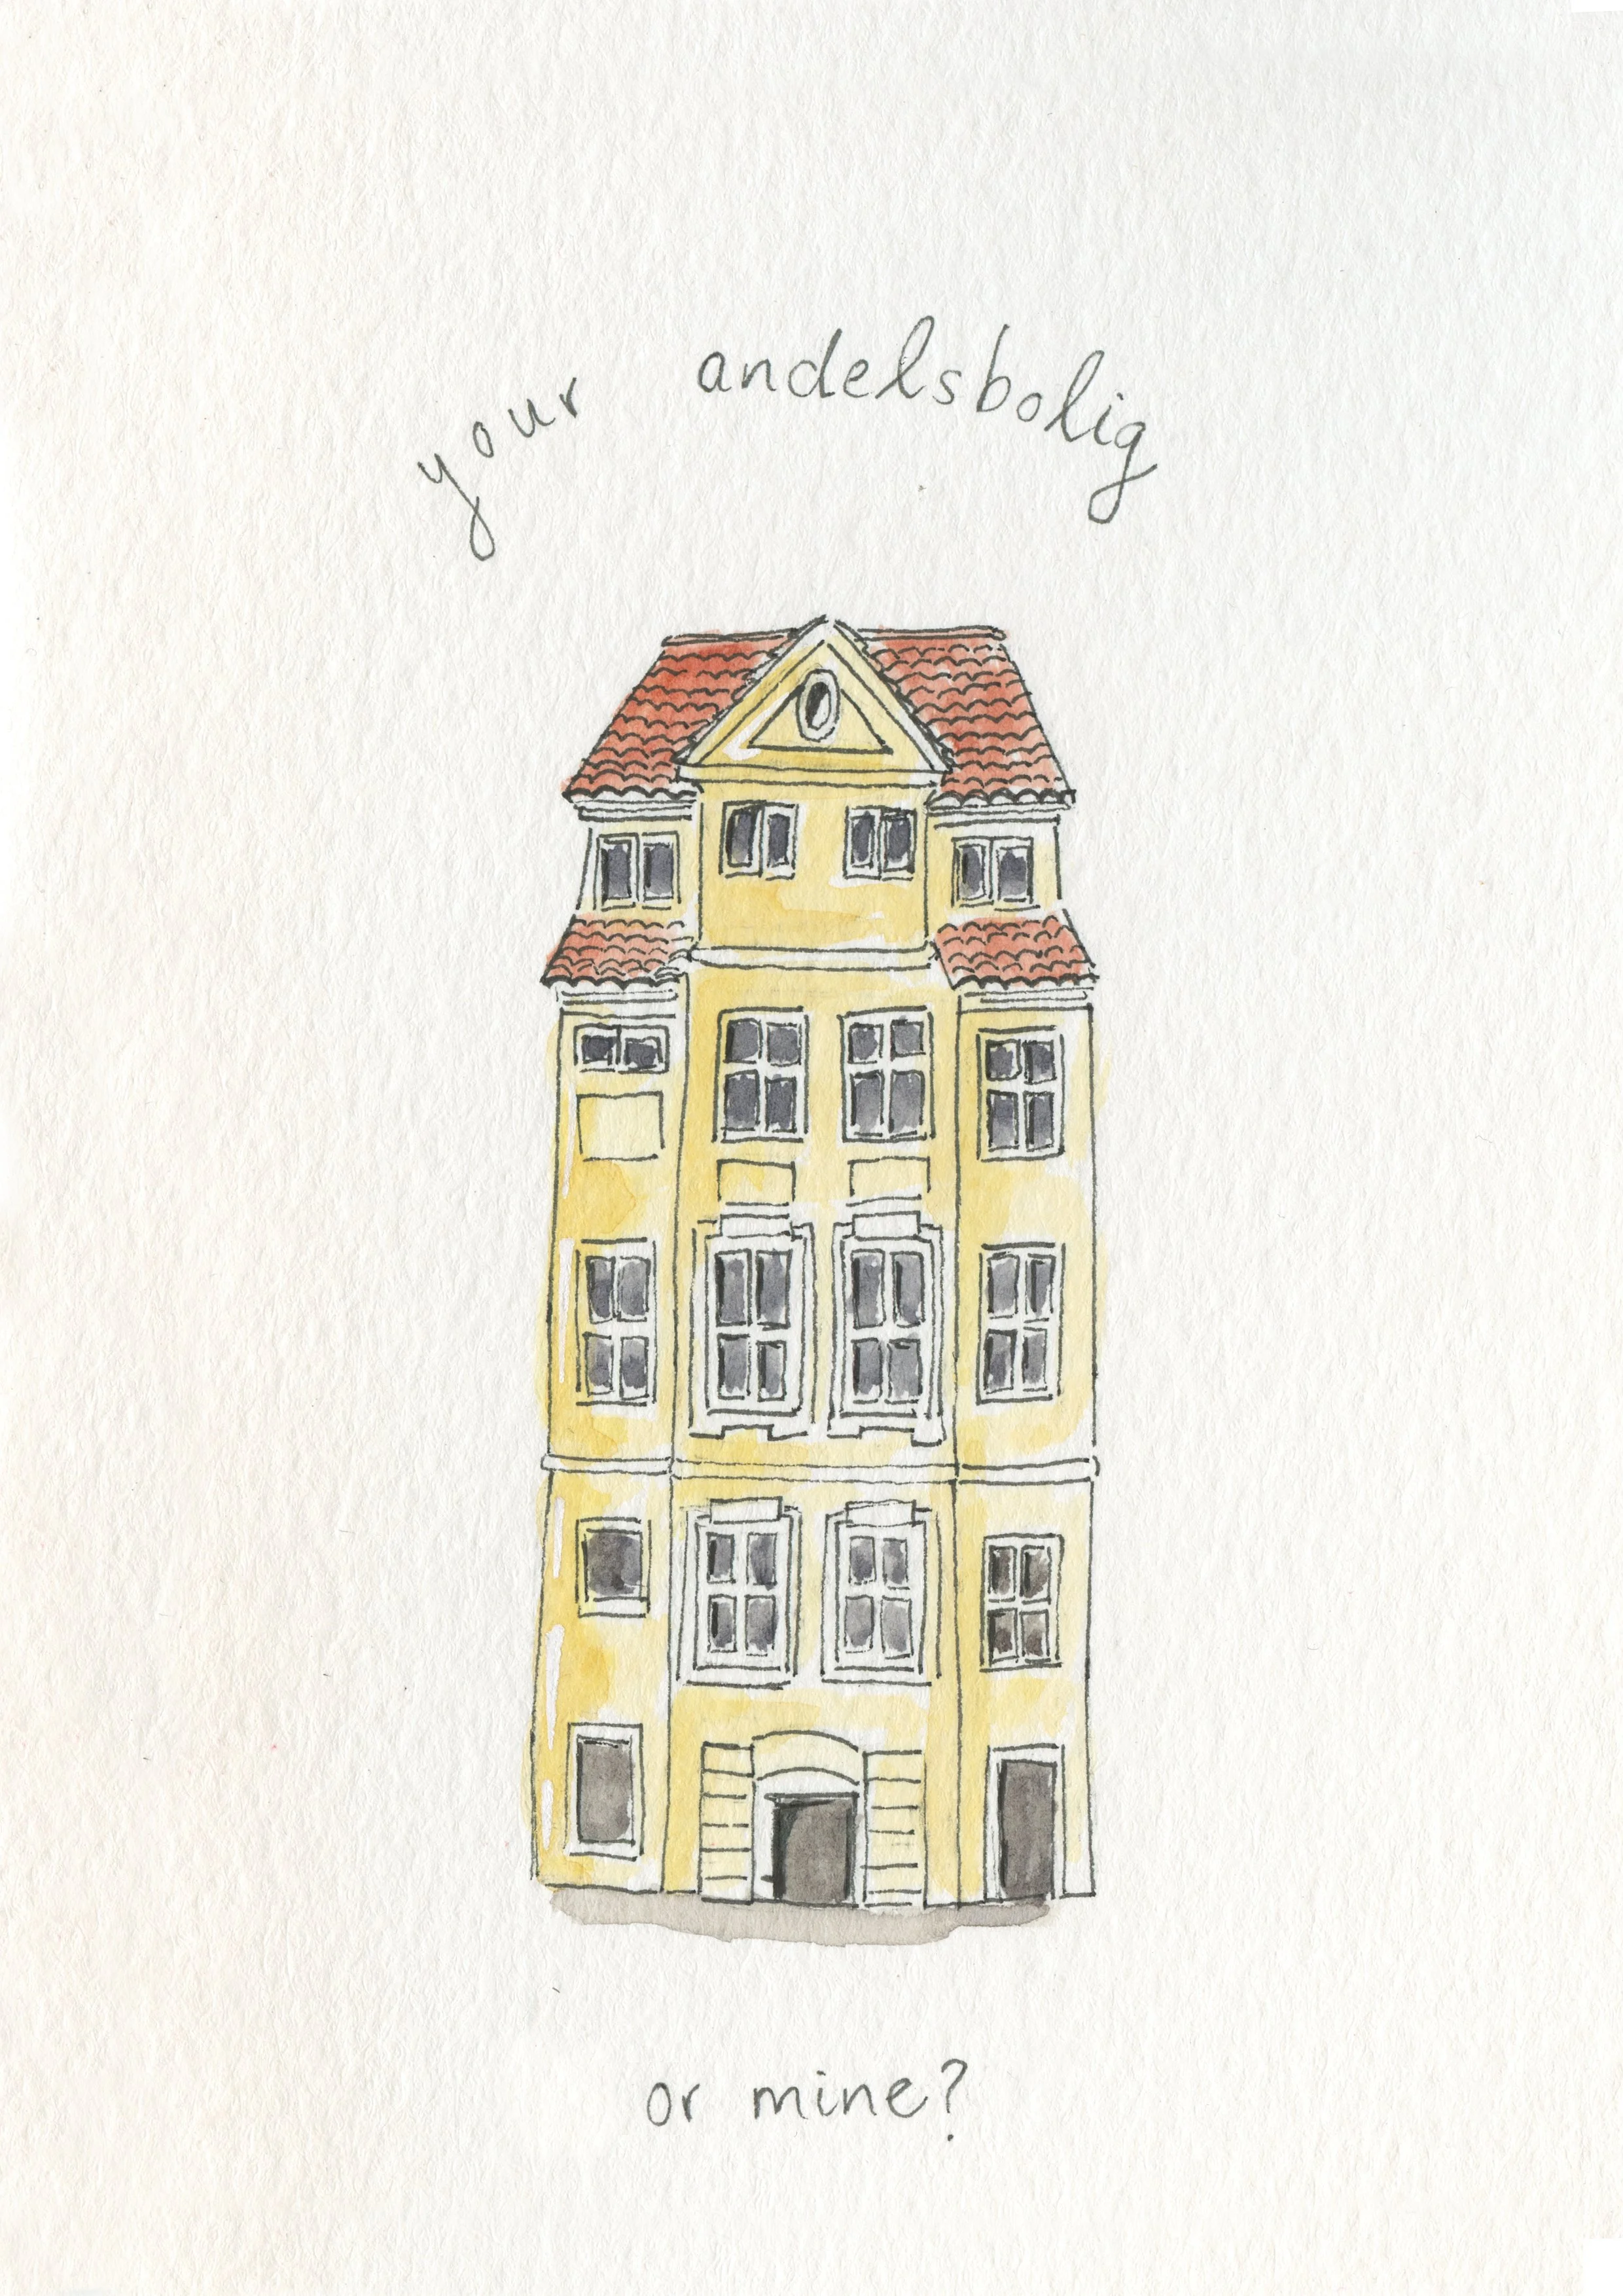 your andelsbolig
or mine?